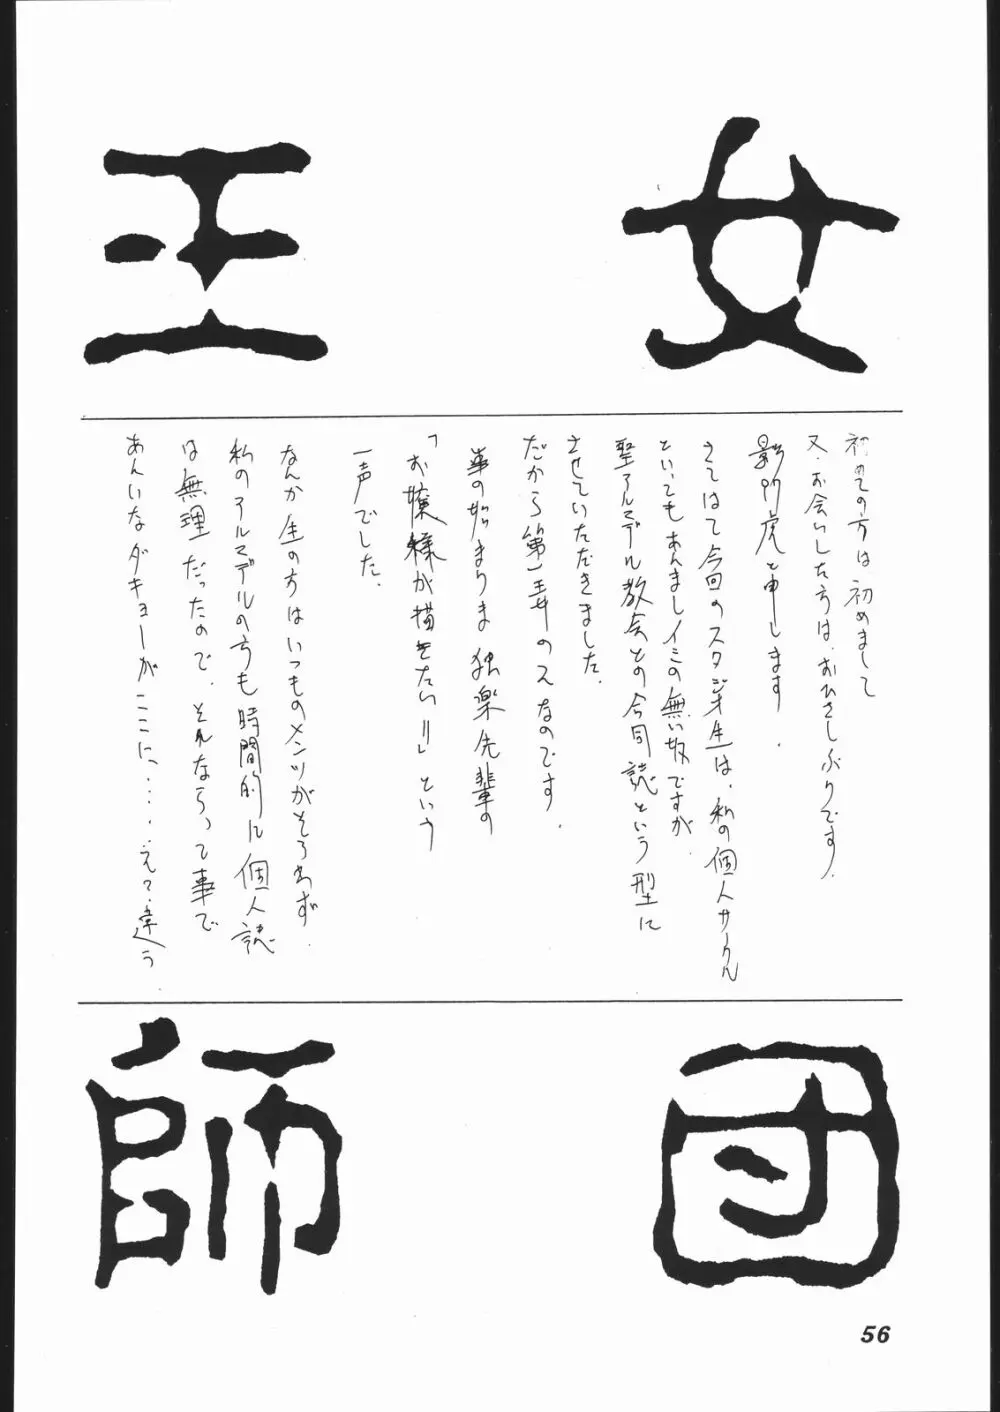 王女
初めての方は初めまして
又、お会いした方は、おひさしぶりです。
影門虎と申します。
さてはて今回のスタジオ生は、私の個人サークル
といってもあんましイミの無い奴ですが、
聖アルマデル教会との合同誌という型に
させていただきました。
だから第一弄のえなのです。
事の始まりは独楽先輩の
「お嬢様が描きたい!!」という
一声でした。
なんか生の方はいつものメンツがそろわず、
私のアルマデルの方も時間的に個人誌
は無理だったので、それならって事で
あんいなダキョーがここに……えっ、違う
師団
56